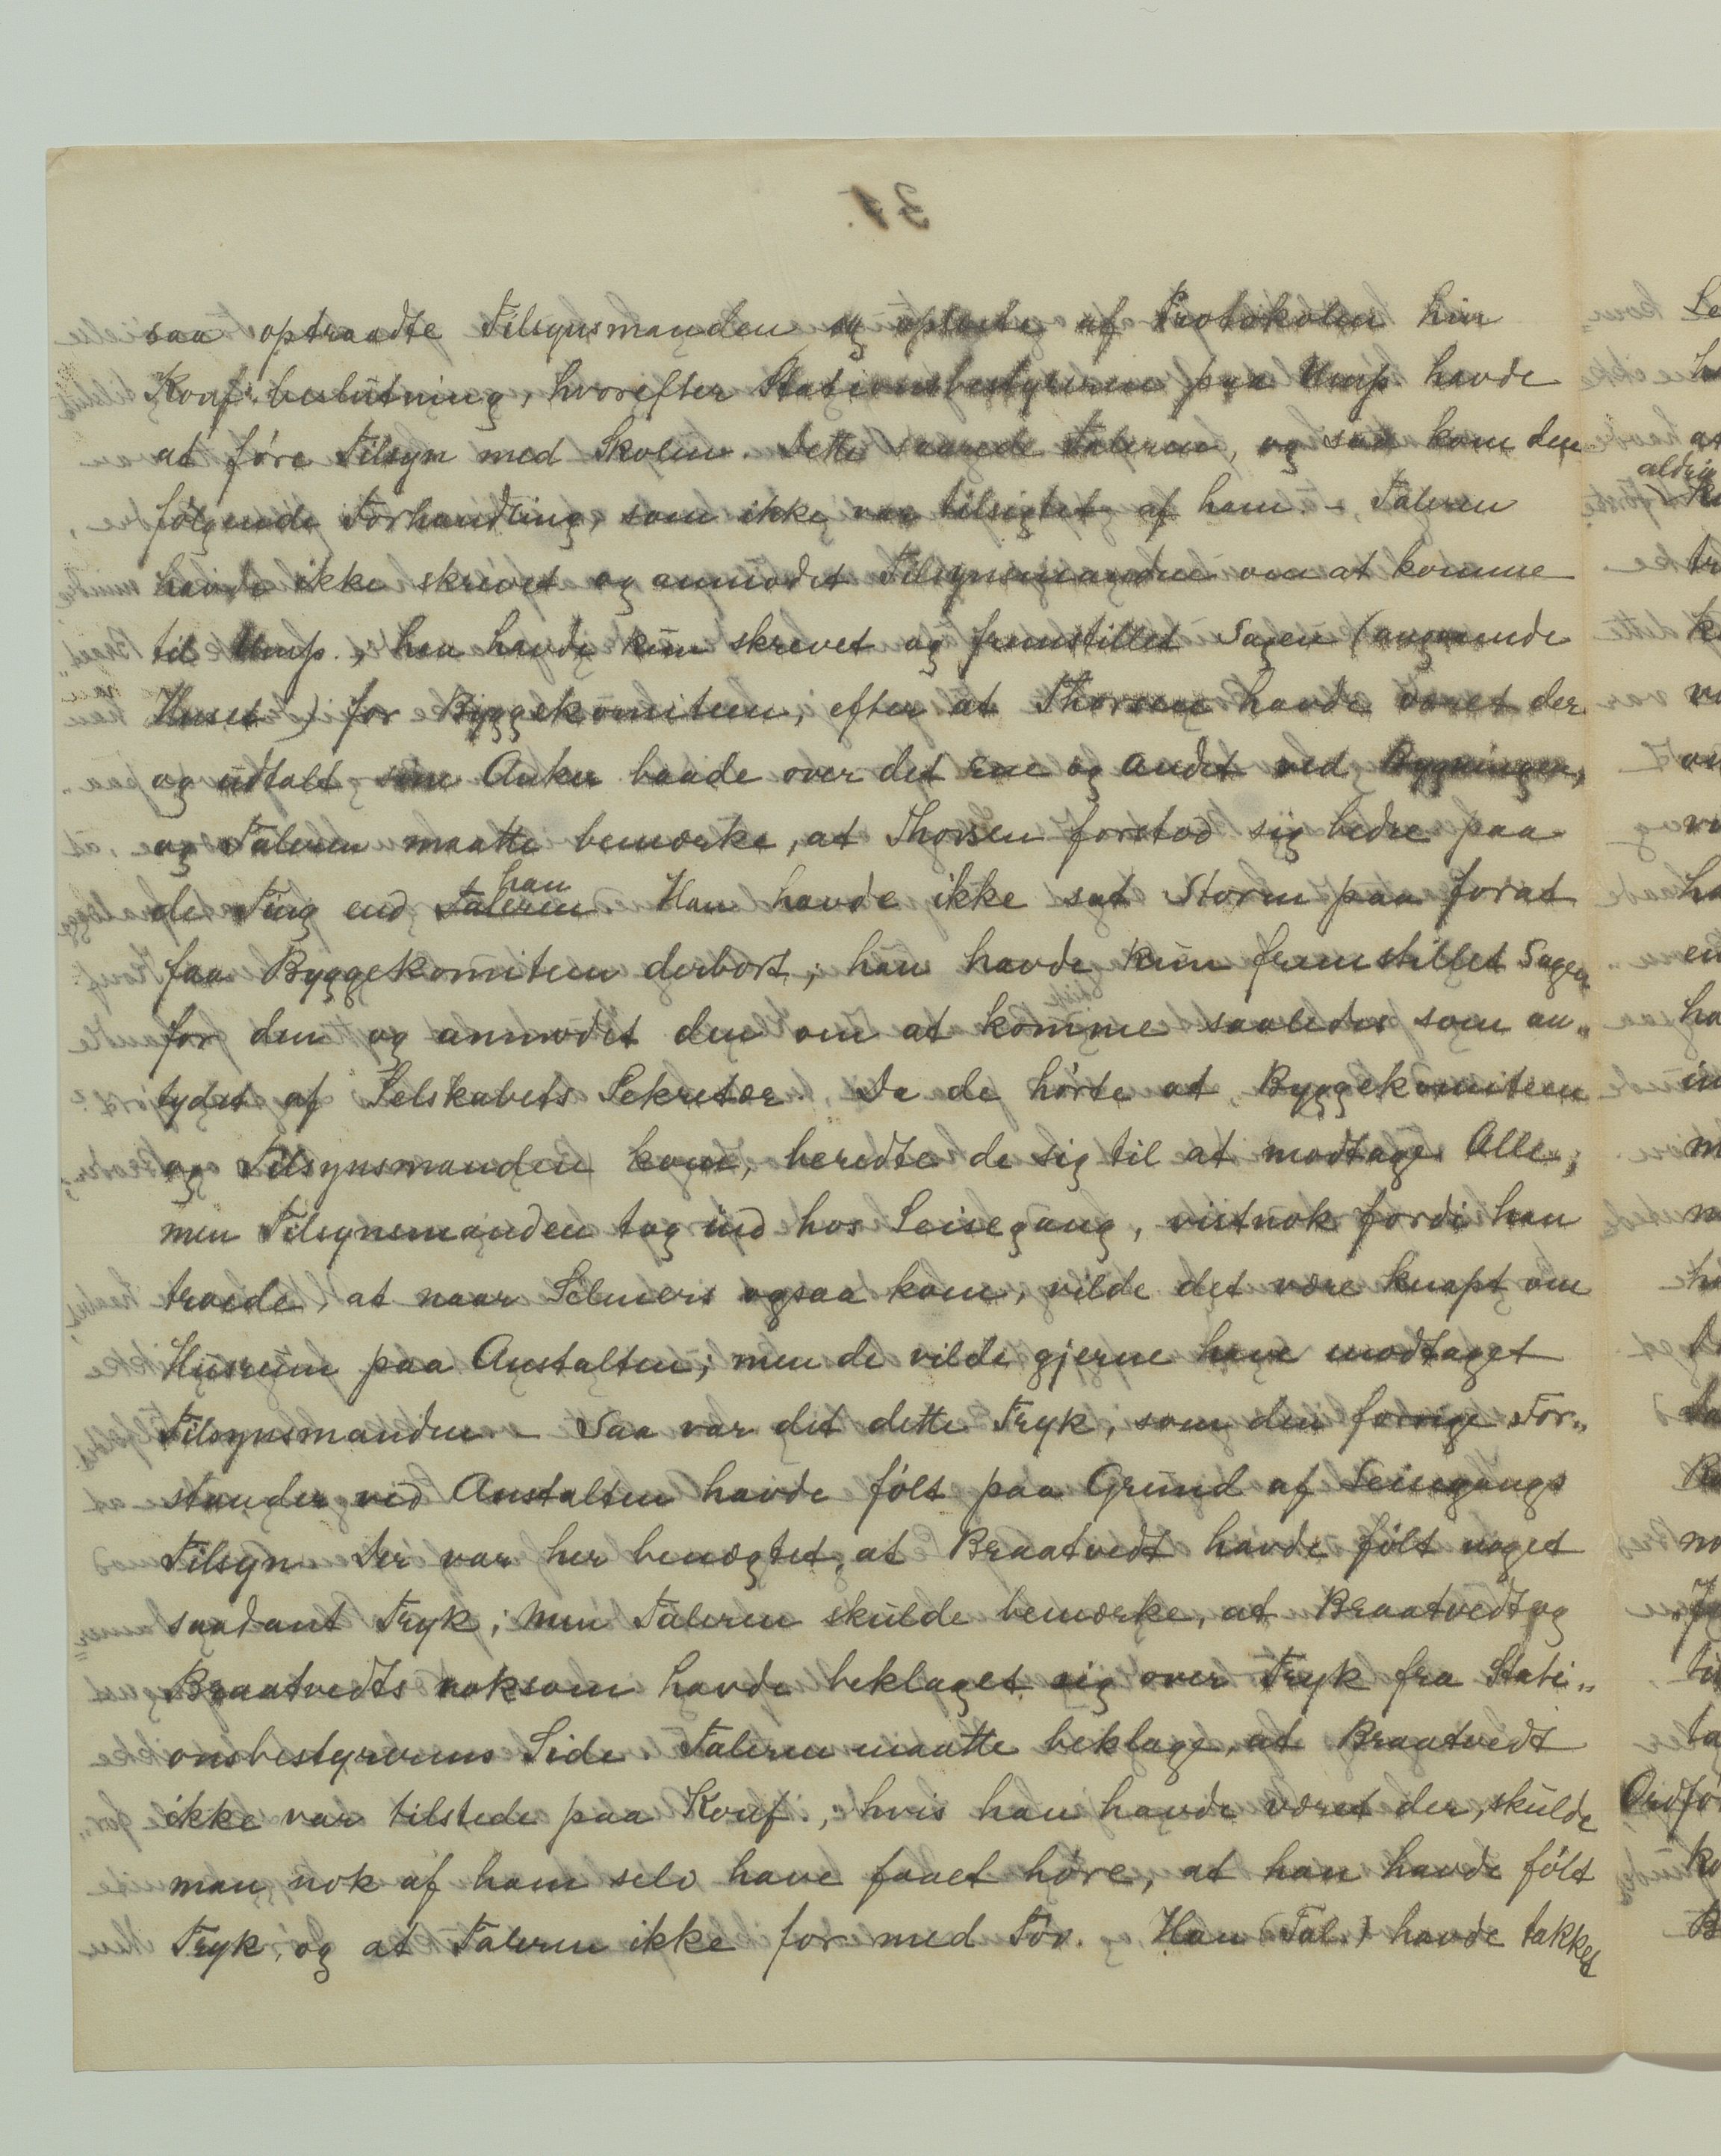 saa optraadte Tilsynsmanden og oplæste af Protokolen hin
Konfs. beslutning, hvorefter Stationsbestyreren paa Ump. havde
at føre Tilsyn med Skolen. Dette saarede Taleren, og saa kom den
følgende Forhandling, som ikke var tilsigtet af ham. – Taleren
havde ikke skrevet og anmodet Tilsynsmanden om at komme
til Ump., han havde kun skrevet og fremstillet Sagen (angaaende
Huset) for Byggekomiteen, efter at Thorsen havde været der
og udtalt sine Anker baade over det ene og andet ved Bygningen,
og Taleren maatte bemærke, at Thorsen forstod sig bedre paa
de Ting end Taleren han. Han havde ikke sat Storm paa forat
faa Byggekomiteen derbort; han havde kun fremstillet Sagen
for den og anmodet den om at komme saaledes som an„
tydet af Selskabets Sekretær. Da de hørte at Byggekomiteen
og Tilsynsmanden kom, beredte de sig til at modtage Alle;
men Tilsynsmanden tog ind hos Leisegang, vistnok fordi han
troede, at naar Selmers ogsaa kom, vilde det være knapt om
Husrum paa Anstalten; men de vilde gjerne have modtaget
Tilsynsmanden. – Saa var det dette Tryk, som den forrige For„
stander ved Anstalten havde følt paa Grund af Leisegangs
Tilsyn. Der var her benægtet, at Braatvedt havde følt noget
saadant Tryk; men Taleren skulde bemærke, at Braatvedt og
Braatvedts noksom havde beklaget sig over Tryk fra Stati„
onsbestyrerens Side. Taleren maatte beklage, at Braatvedt
ikke var tilstede paa Konf., hvis han havde været der, skulde
man nok af ham selv have faaet høre, at han havde følt
Tryk, og at Taleren ikke for med Töv. Han (Tal.) havde takket